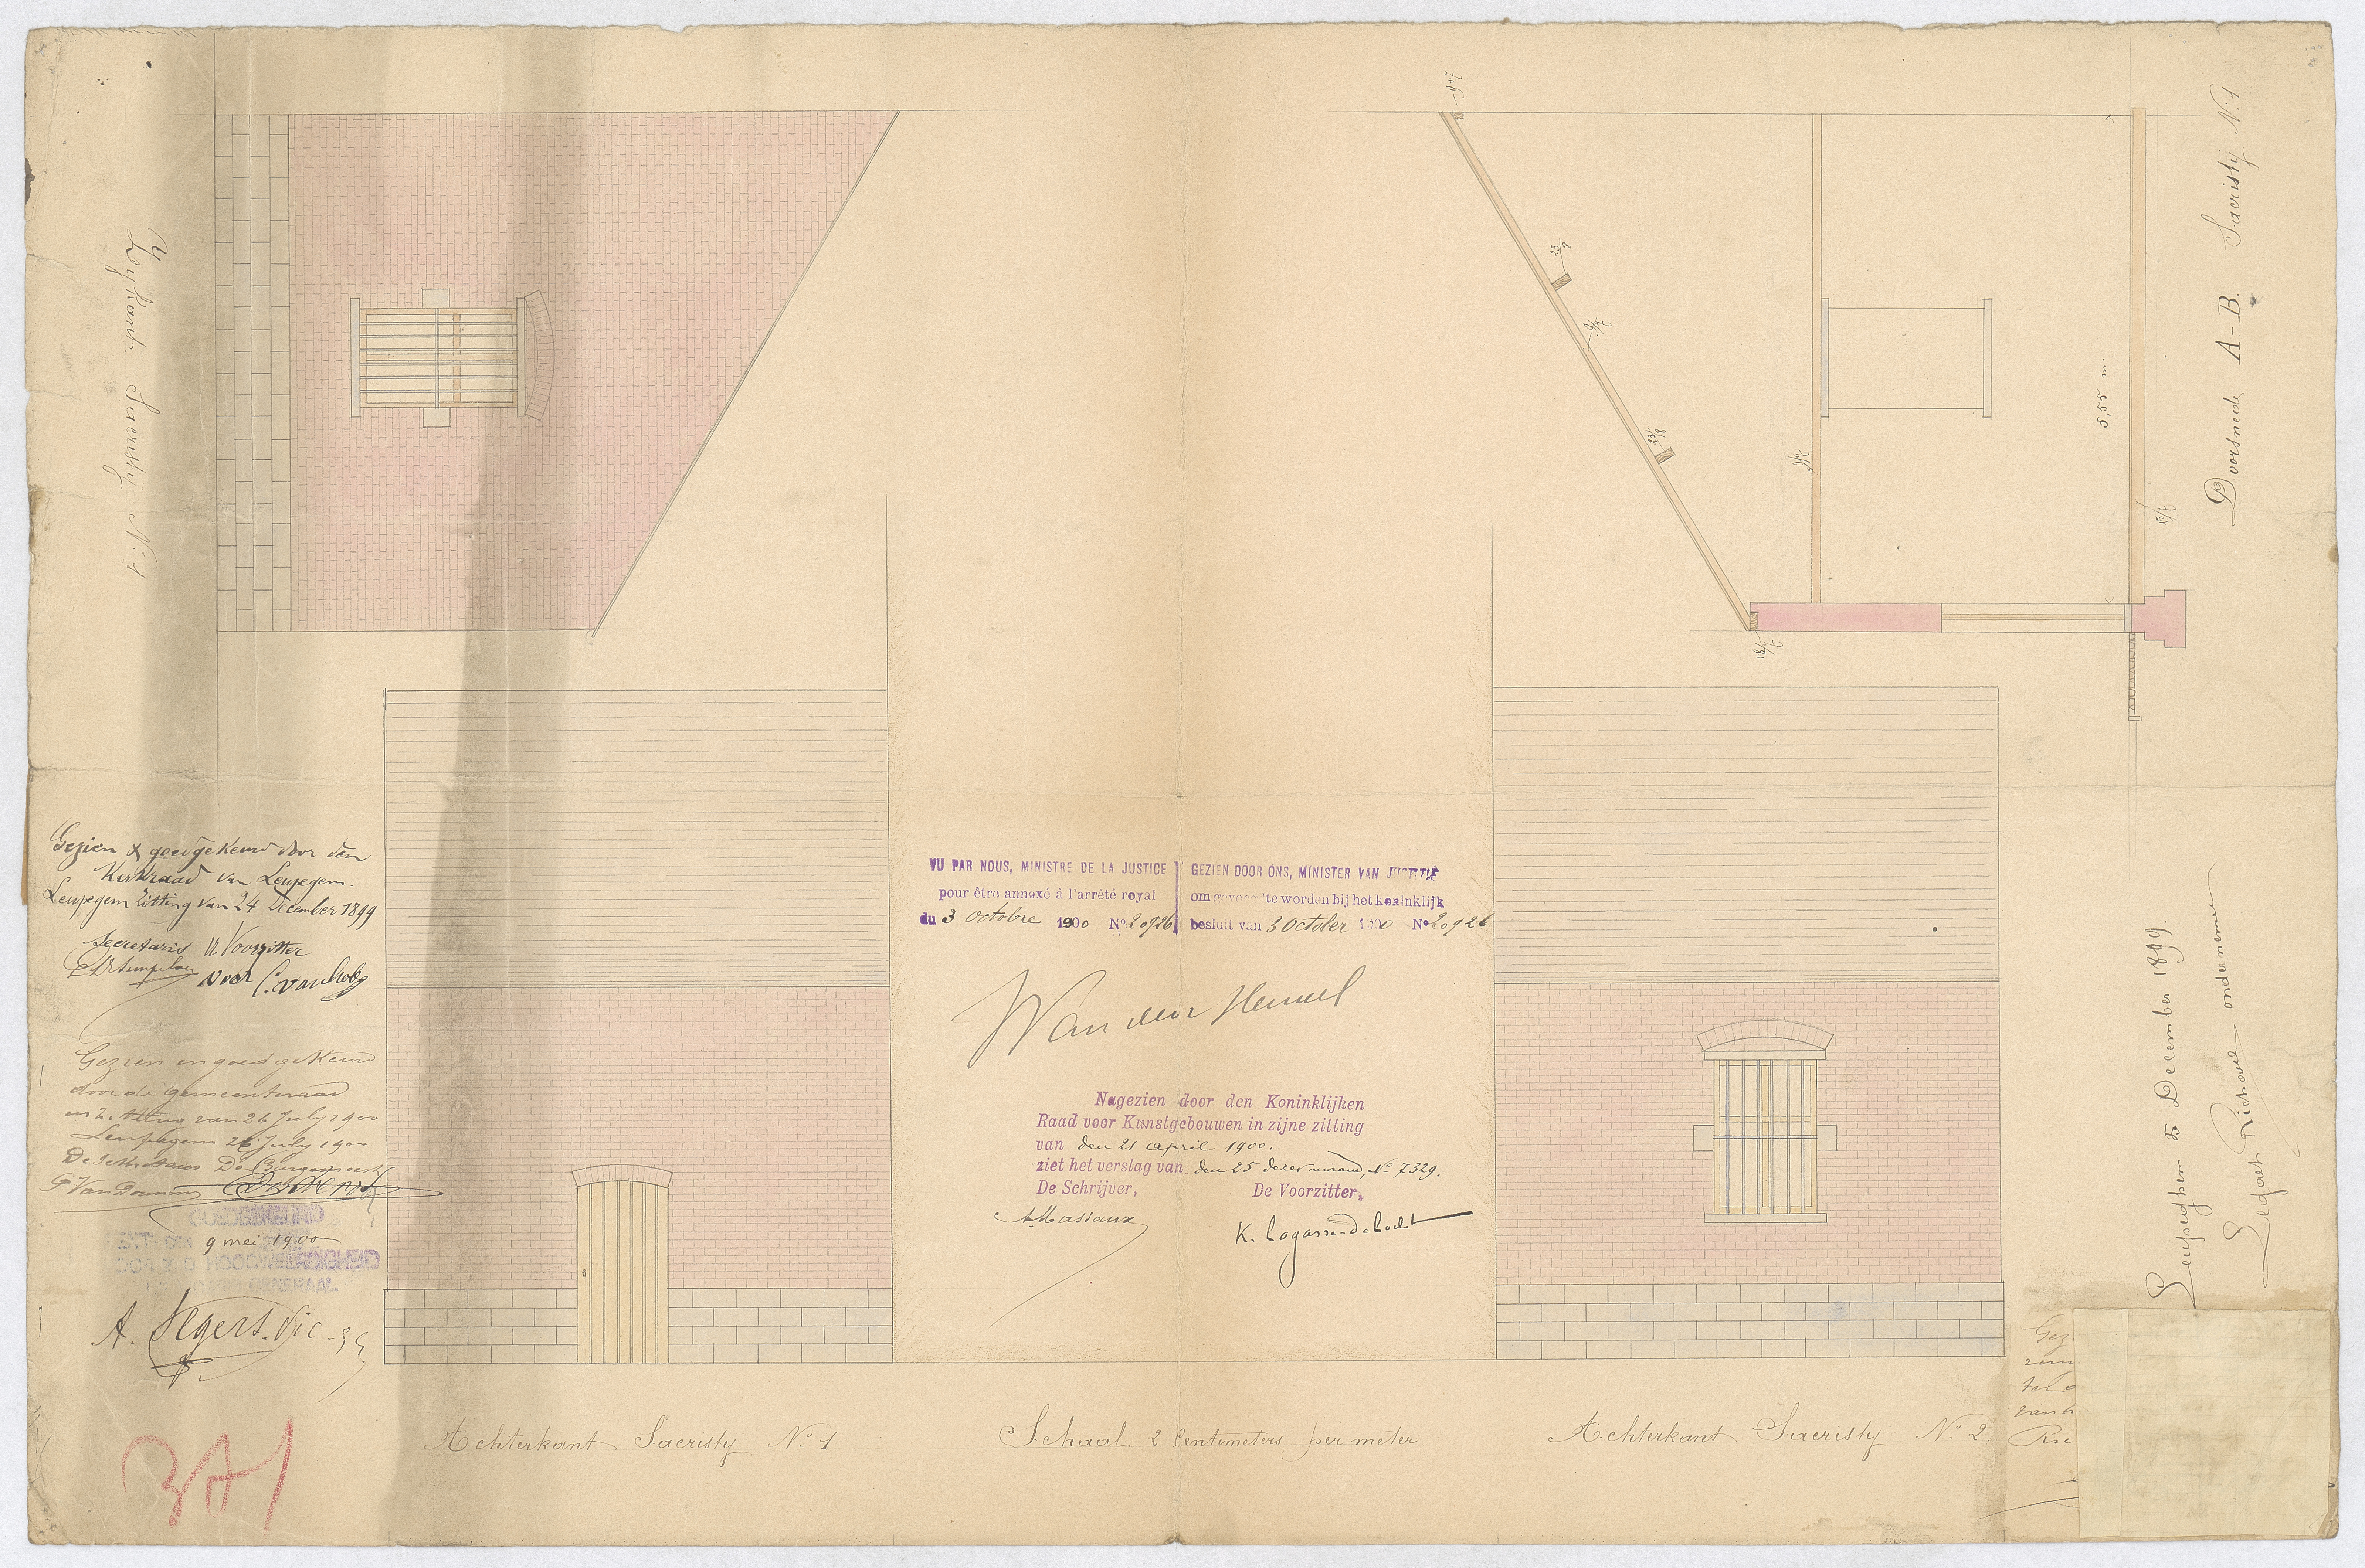 Zijkant Sacristy N.° 1
Gezien & goedgekeurd door den
Kerkraad van Leupegem.
Leupegem Zitting van 24 December 1899
Secretaris
Voorzitter
Gezien en goedgekeurd
door de gemeenteraad
van 26 July 1900
Leupegem 26 July 1900
De Burgemeester
GOEDGEKEURD
9 mei 1900
A. Segers. Vic.
Achterkant Sacristy N.° 1
VU PAR NOUS, MINISTRE DE LA JUSTICE
pour être annexé à l'arrêté royal
du 3 octobre 1900 N° 20926
GEZIEN DOOR ONS, MINISTER VAN JUSTITIE
om gevoegd te worden bij het koninklijk
besluit van 3 October 1900 N° 20926
Van den Heuvel
Nagezien door den Koninklijken
Raad voor Kunstgebouwen in zijne zitting
van den 21 april 1900.
ziet het verslag van den 25 dezer maand, N° 7329.
De Schrijver,
De Voorzitter,
A. Massaux
K. Lagasse-de Locht
Schaal 2 Centimeters per meter
Achterkant Sacristy N.° 2.
Doorsnede A-B. Sacristy N.° 1
5,55 m.
23/8
23/8
Leupeghem 5 December 1899
ondernemer
Gez